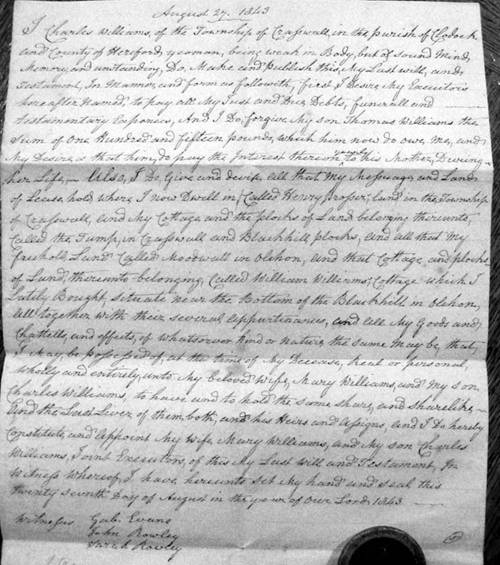 August 27. 1843
I Charles Williams, of the Township of Crasswall, in the parish of Clodock
and County of Hereford, yeoman, being weak in Body, but of Sound Mind,
Memory, and unstanding, Do, Make and Publish this, My Last will, and
Testament, In Manner, and form as followith, first I Desire My Executors
hereafter Named, to pay all My Just and Due Debts, funerall and
Testamentary Expences, And I Do, forgive My son Thomas Williams the
Sum of One Hundred and fifteen pounds, which him now do owe, Me, and
My Desire is that him, do pay the Interest thereon yearly to his Mother, During
her Life, – Also, I Do, Give and devise, all that My Messuage, and Lands
of Lease, hold where I now Dwell in, Called Henry Prosser; land in the Township
of Crasswall, and My Cottage and the plocks of Land belonging thereunto,
Called the Tump, in Crasswall and Blackhill plocks, and all that My
freehold, Land Called Moorwall in olchon, and that Cottage and plocks
of Land, thereunto belonging, Called William Williams; Cottage which I
Lately Bought, situate near the Bottom of the Blackhill in olchon,
All together with their several appurtinances, and all My Goods and
Chattells, and effects, of whatsoever kind or nature the same may be, that
I May be possessed of, at the time of My Decease, Real or personal,
Wholly and entirely, unto My beloved Wife, Mary Williams, and My son
Charles Williams, to have and to hold the same share, and sharelike, –
And the Last Liver of them both, and his Heirs and Assigns, and I Do hereby
Constitute, and Appoint My Wife Mary Williams, and My son Charles
Williams, Joint Executors, of this My Last Will and Testament, In
Witness Whereof, I have hereunto set My hand and seal this
Twenty seventh Day of August in the year of Our Lord 1843
Witnesses Gab. Evans
John Rowley
Rowley